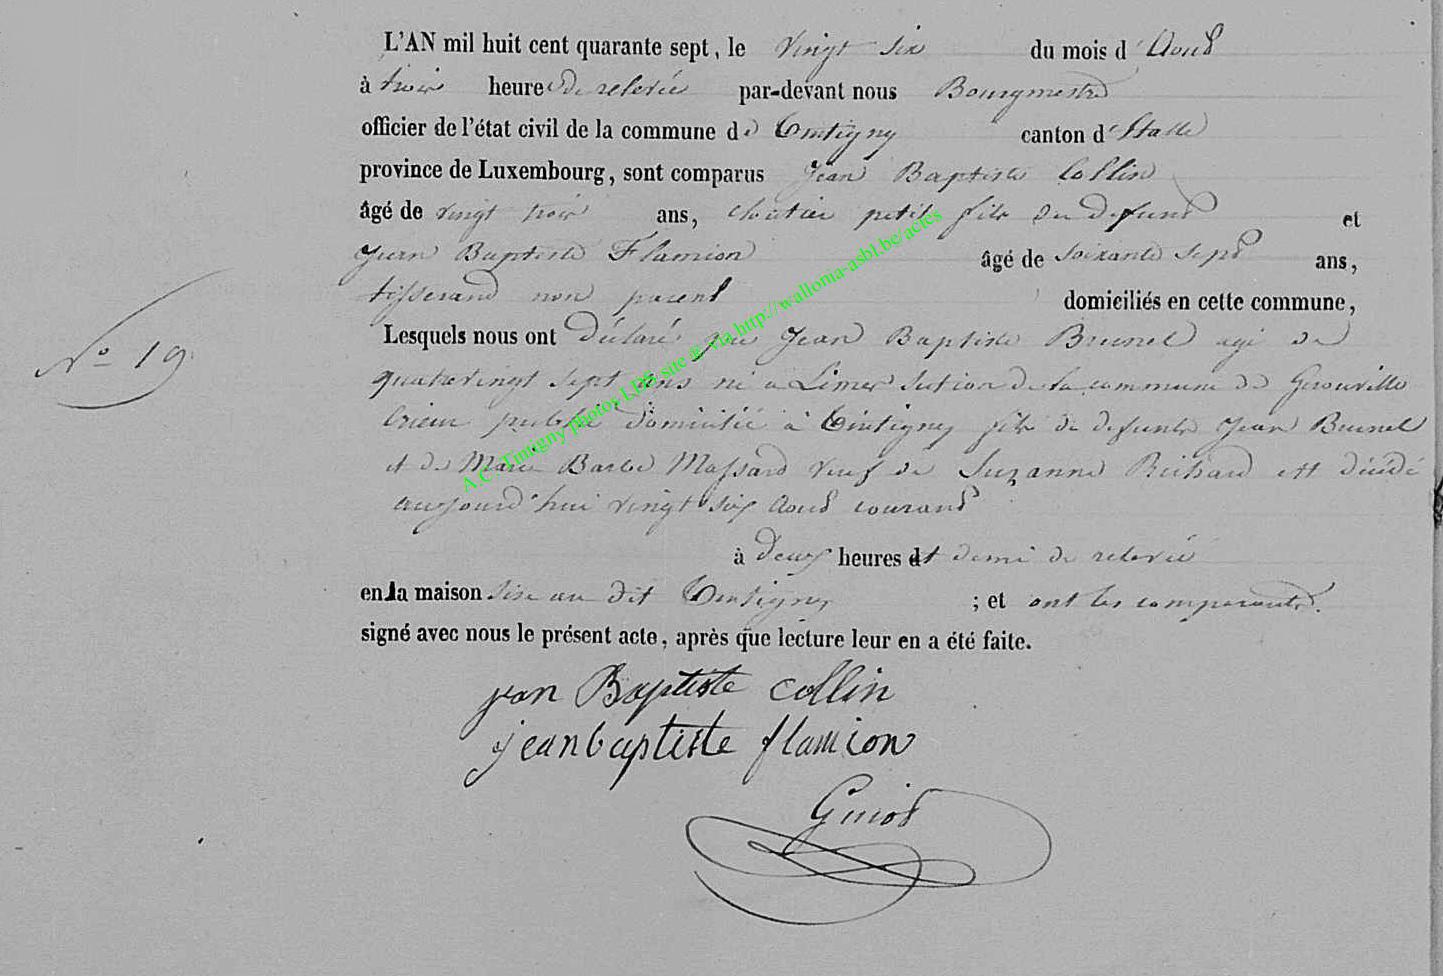 L'AN mil huit cent quarante sept, le vingt six du mois d'Aout
à trois heures de relevée par-devant nous Bourgmestre
officier de l'état civil de la commune de Tintigny canton d'Etalle
province de Luxembourg, sont comparus Jean Baptiste Collin
âgé de vingt trois ans, cloutier petit fils du defunt et
Jean Baptiste Flamion âgé de soixante sept ans,
tisserand non parent domiciliés en cette commune,
Lesquels nous ont déclaré que Jean Baptiste Brunel agé de
N° 19
quatrevingt sept ans né a Limes section de la commune de Gerouville
crieur public domicilié à Tintigny fils de defunts Jean Brunel
et de Marie Barbe Massard veuf de Suzanne Richard est décédé
aujourd'hui vingt six Aout courant
à deux heures et demi de relevée
en la maison sise au dit Tintigny ; et ont les comparants
signé avec nous le présent acte, après que lecture leur en a été faite.
jean Baptiste collin
jeanbaptiste flamion
Guiot
A.C. Tintigny photos LDS site & via http://wallonia-asbl.be/actes